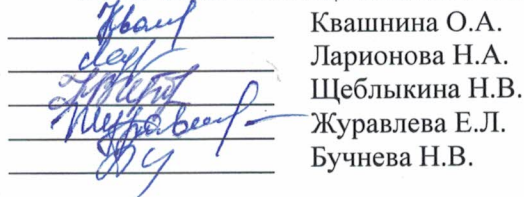 Квашнина О.А.
Ларионова Н.А.
Щеблыкина Н.В.
Журавлева Е.Л.
Бучнева Н.В.